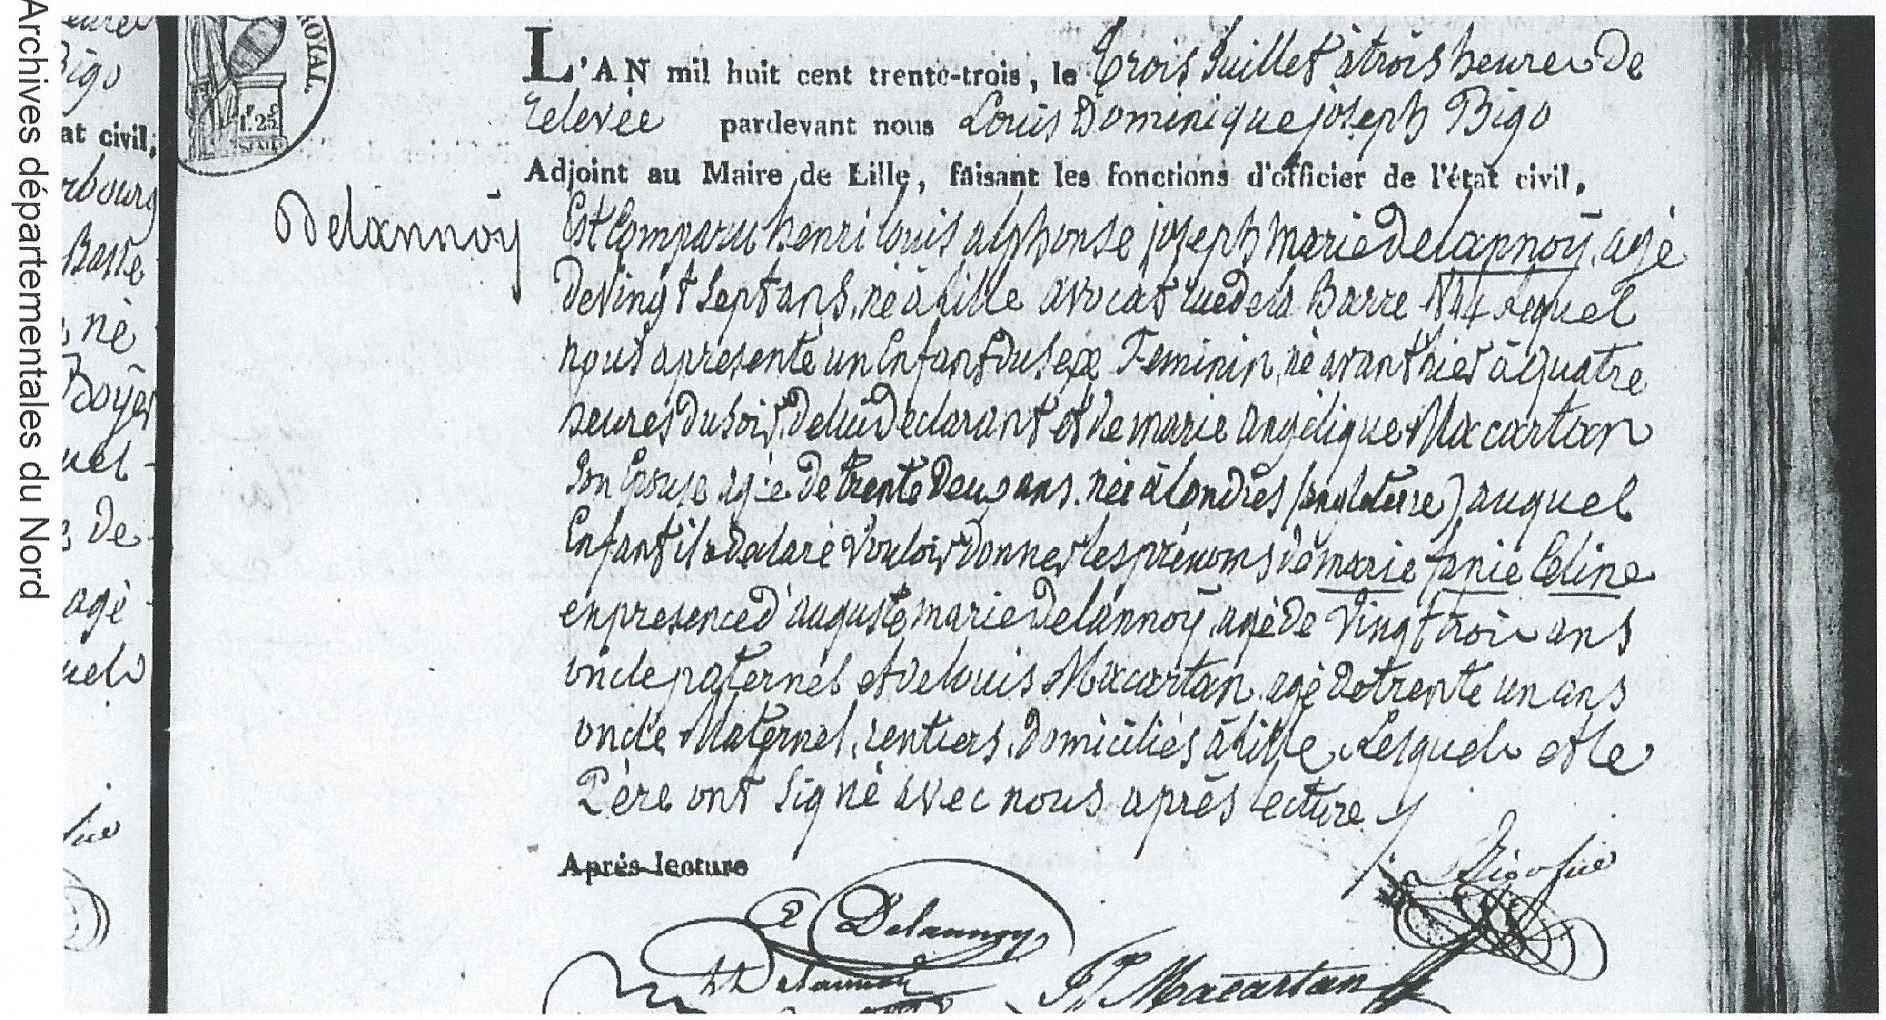 Archives départementales du Nord
Bigo
at civil,
rbourg
Basse
né
Boyer
uel
de
agé
uels
ROYAL.
1f.25
L'AN mil huit cent trente-trois, le trois Juillet à trois heures De
relevée pardevant nous Louis Dominique joseph Bigo
Adjoint au Maire de Lille, faisant les fonctions d'officier de l'état civil,
Delannoÿ
Est Comparu henri louis alphonse joseph marie Delannoÿ, agé
De Vingt Sept ans, né à Lille avocat rue de la Barre N.44 Lequel
nous a presenté un Enfant du sexe Feminin, né avant hier à quatre
heures du soir, de lui Declarant et de marie angélique Macartan
son Epouse agée de trente Deux ans. née à Londres (angleterre) auquel
Enfant il a Declaré Vouloir donner les prénoms de marie fanie Celine
en presence d'auguste marie Delannoÿ, agé de Vingt trois ans
oncle paternel et de louis Macartan, agé de trente un ans
oncle Maternel, rentiers, Domiciliés à Lille, Lesquels et le
Père ont signé avec nous après lecture
Après lecture
Bigo
Delannoy
Delannoy
Macartan